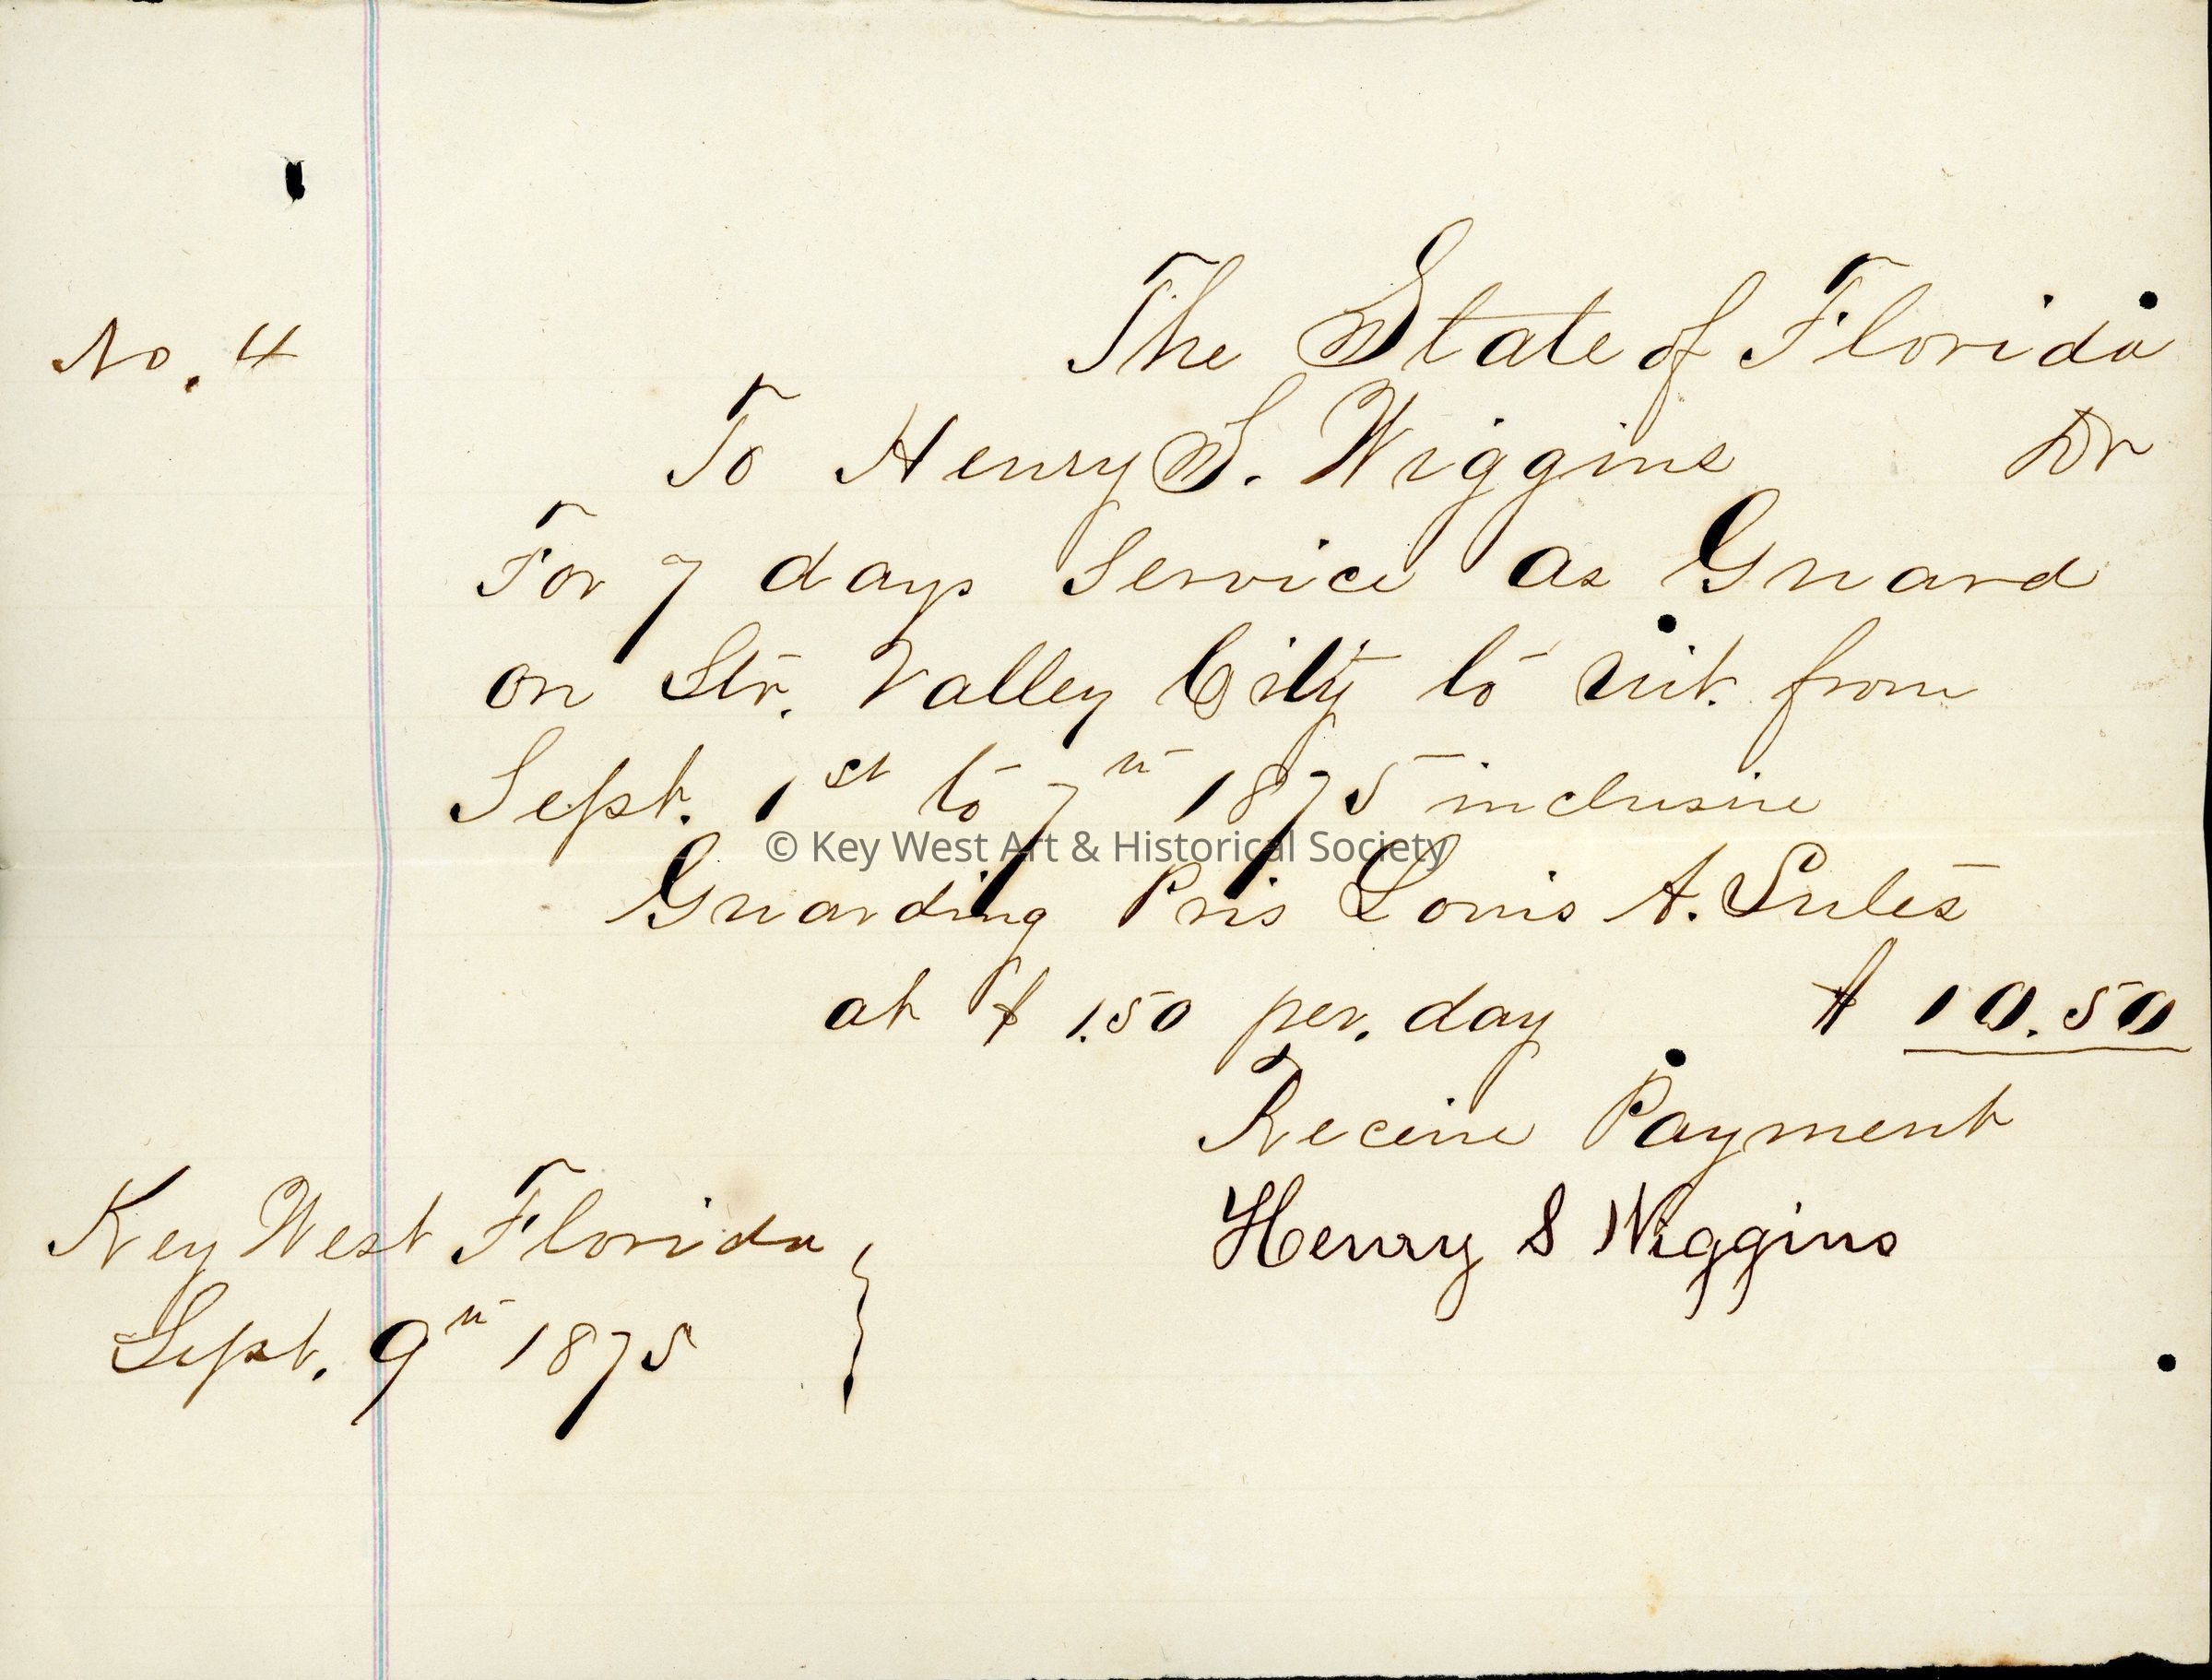 No. 4
The State of Florida
To Henry S. Wiggins Dr
For 7 days Service as Guard
on Str. Valley City to wit. from
Sept. 1st to 7th 1875 inclusive
© Key West Art & Historical Society
Guarding Pris Louis A. Sules
at $ 1.50 per. day $ 10.50
Receive Payment
Henry S Wiggins
Key West Florida
Sept. 9th 1875